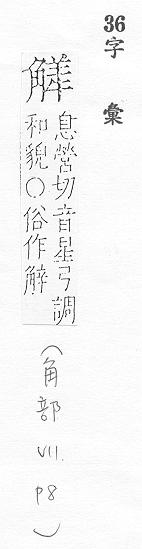 36 字彙
觲
息營切音星弓調
和貌〇俗作觧
(角部 VII. P8)